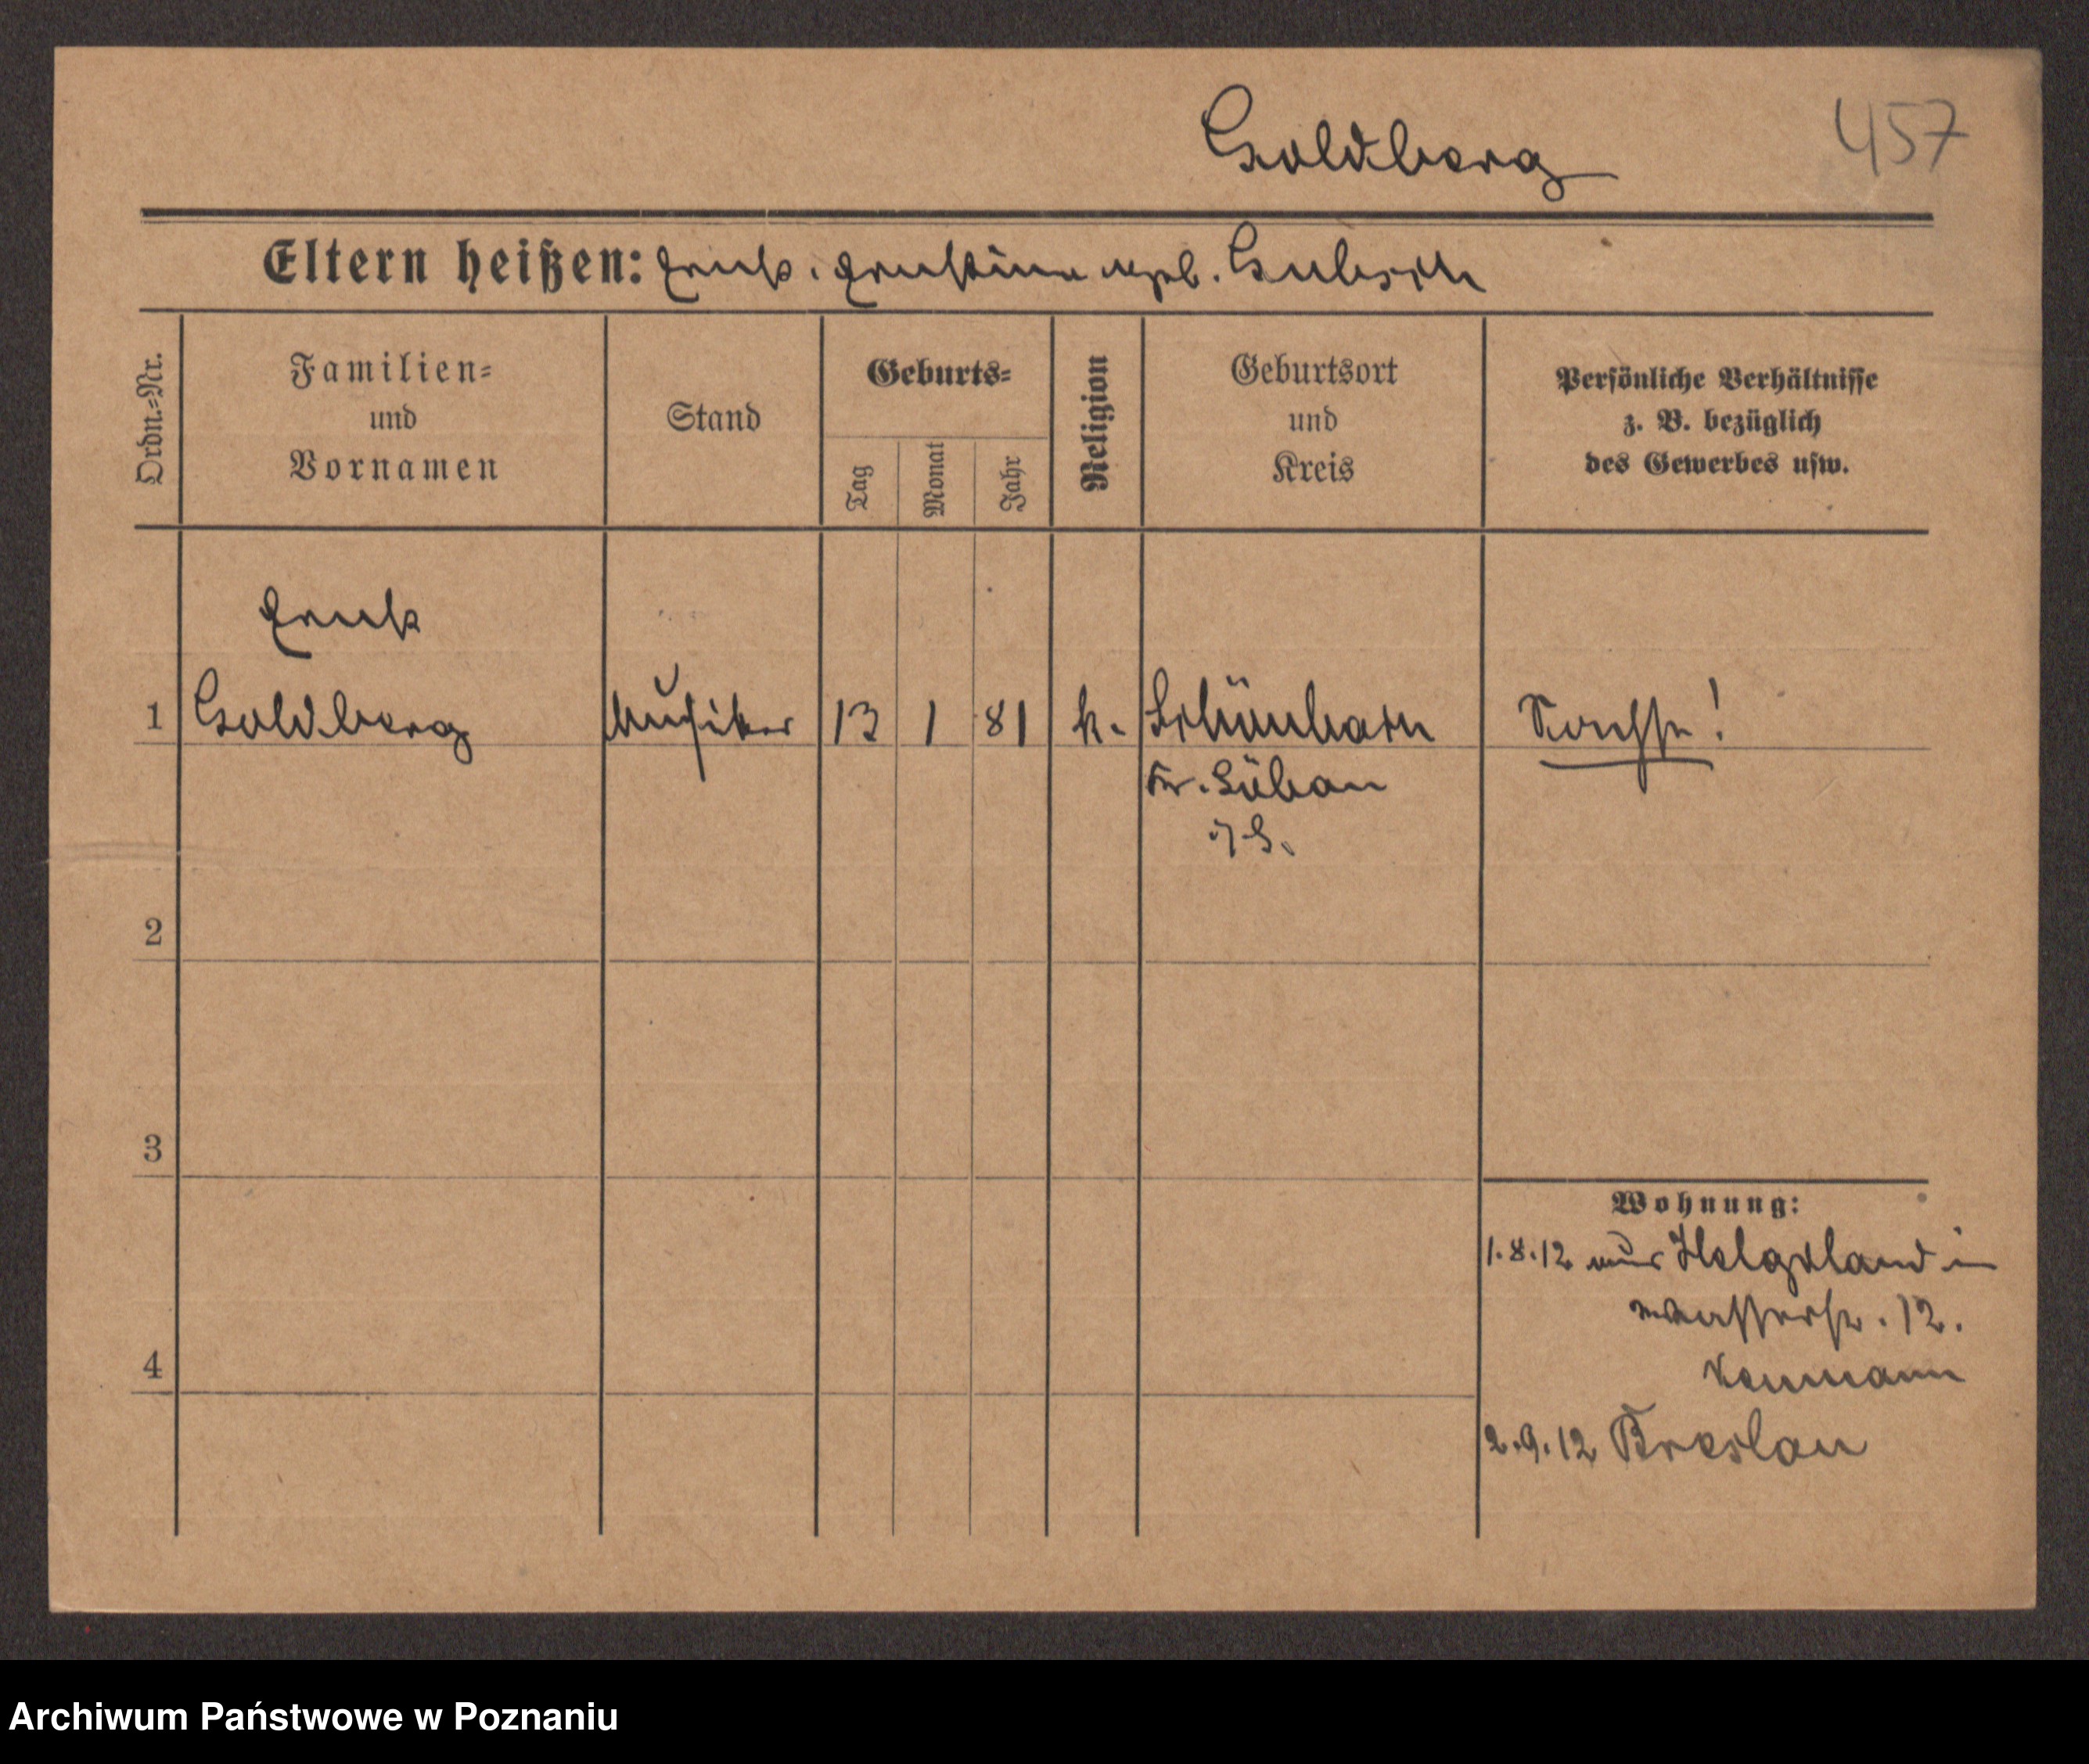 Goldberg
457
Eltern heißen: Ernst. Ernstine geb. Gubsch
Ordn.=Nr.
Familien=
und
Vornamen
Stand
Geburts=
Tag
Monat
Jahr
Religion
Geburtsort
und
Kreis
Persönliche Verhältnisse
z. B. bezüglich
des Gewerbes usw.
Ernst
1 Goldberg Musiker 13 1 81 k. Schönharn
Kr. Lüban
i/S.
2
3
4
Wohnung:
1.8.12 aus Helgoland in
Wasserstr. 12.
Neumann
2.9.12 Breslau
Archiwum Państwowe w Poznaniu